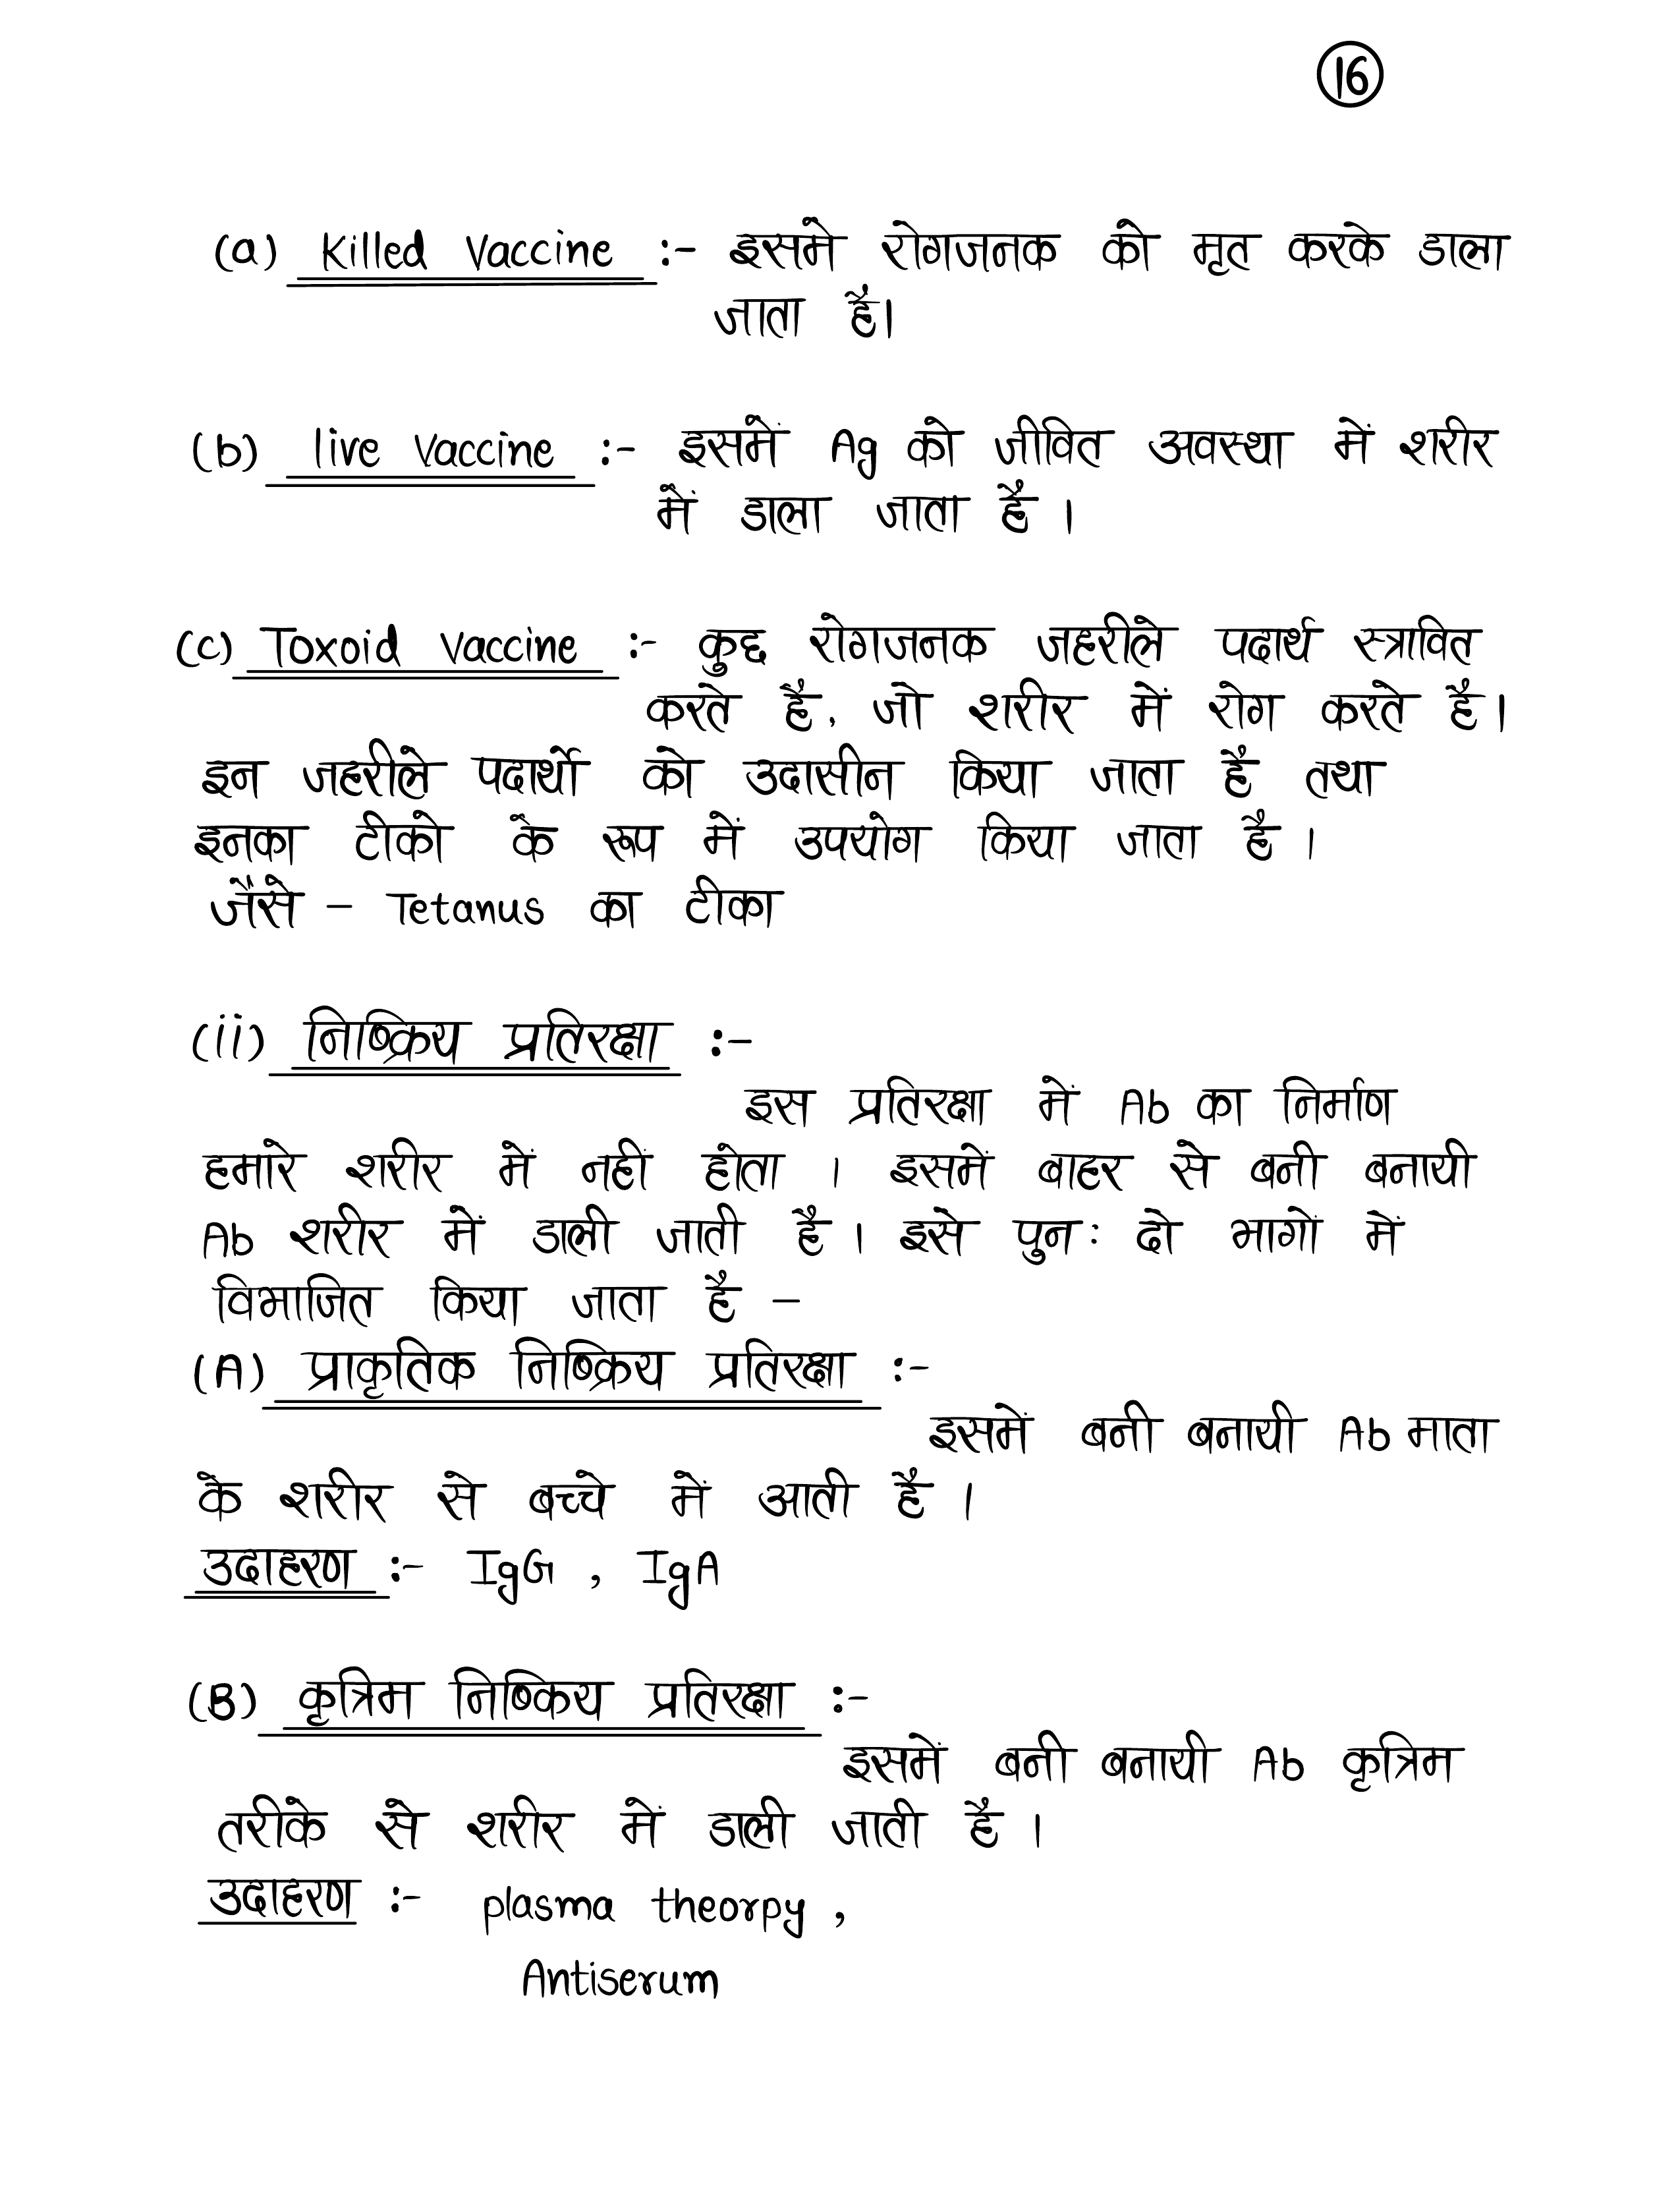 16
(a) Killed Vaccine :- इसमें रोगजनक को मृत करके डाला
जाता है।
(b) live Vaccine :- इसमें Ag को जीवित अवस्था में शरीर
में डाला जाता है ।
(c) Toxoid Vaccine :- कुछ रोगजनक जहरीले पदार्थ स्त्रावित
करते है, जो शरीर में रोग करते है।
इन जहरीले पदार्थो को उदासीन किया जाता है तथा
इनका टीको के रूप में उपयोग किया जाता है ।
जैसे - Tetanus का टीका
(ii) निष्क्रिय प्रतिरक्षा :-
इस प्रतिरक्षा में Ab का निर्माण
हमारे शरीर में नहीं होता । इसमें बाहर से बनी बनायी
Ab शरीर में डाली जाती है । इसे पुनः दो भागों में
विभाजित किया जाता है -
(A) प्राकृतिक निष्क्रिय प्रतिरक्षा :-
इसमें बनी बनायी Ab माता
के शरीर से बच्चे में आती है ।
उदाहरण :- IgG , IgA
(B) कृत्रिम निष्किय प्रतिरक्षा :-
इसमें बनी बनायी Ab कृत्रिम
तरीके से शरीर में डाली जाती है ।
उदाहरण :- plasma theorpy ,
Antiserum